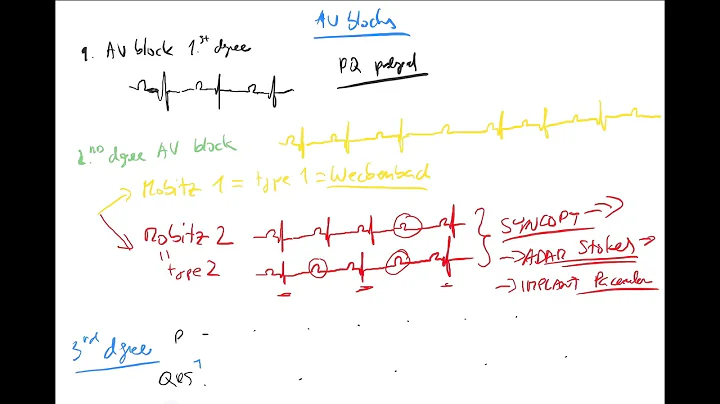 AV blocks
1. AV block 1.st degree
PQ prolonged
2.nd dgree AV block
Mobitz 1 = type 1 = Weckenbad
Mobitz 2
=
type 2
SYNCOPY
ADAM Stokes
IMPLANT Pacemaker
3rd dgree
P
QRS